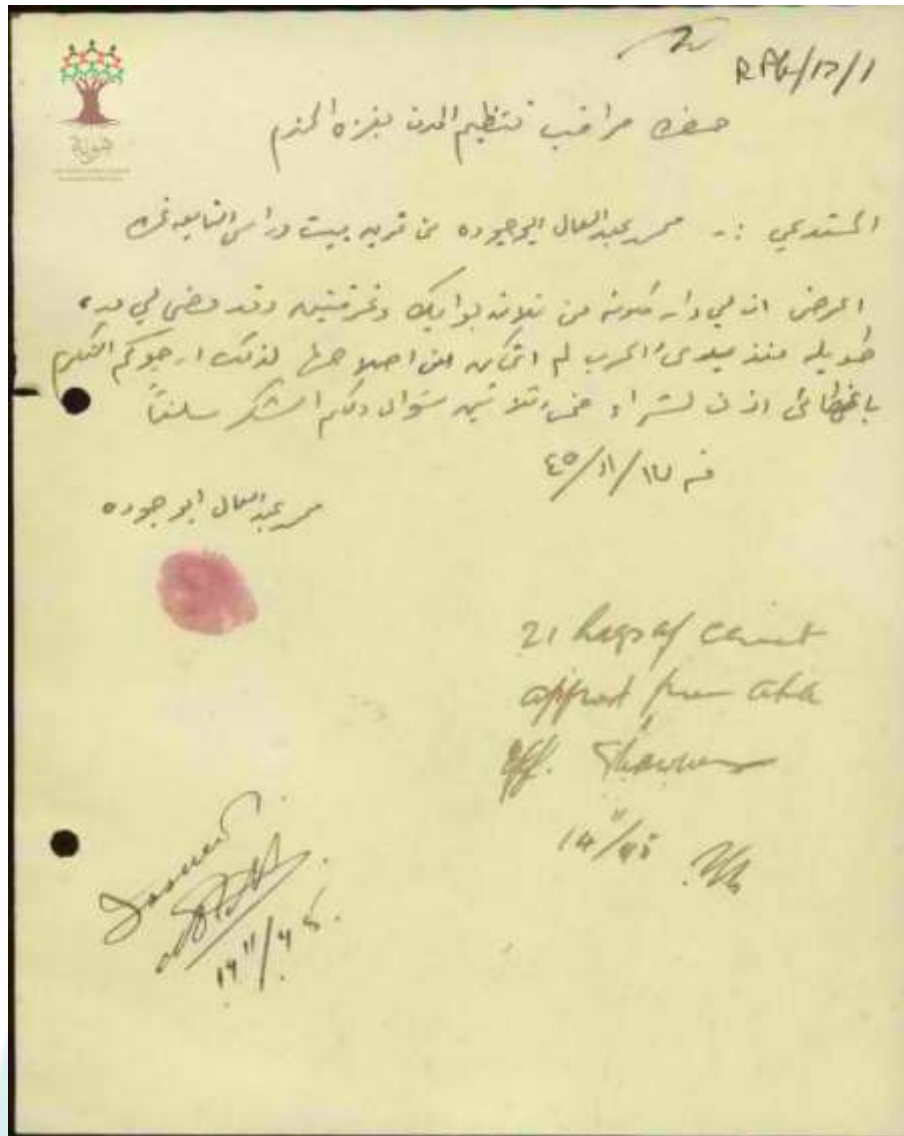 RP6/12/1
حضرة مراقب تنظيم المدن بغزة المحترم
المستدعي :- محمد عبد العال ابو جوده من قرية بيت دراس التابعه غزه
اعرض ان لي دار مكونه من ثلاثة بوايك وغرفتين وقد مضى لي مده
طويله منذ مبدىء الحرب لم اتمكن من اصلاحها لذلك ارجوكم التكرم
باعطائي اذن لشراء خمسه وثلاثين شوال ولكم الشكر سلفاً
في ١٢/١١/٤٥
محمد عبد العال ابو جوده
هوية
21 bags of cement
from
Eff. Shawwa
14/11/45
Issued
14/11/45